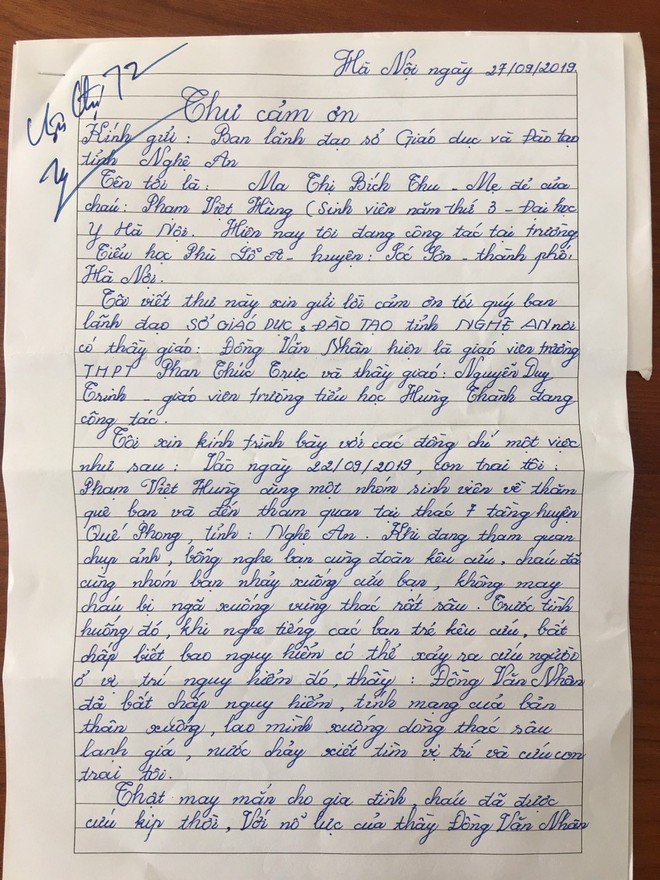 Hà Nội ngày 27/09/2019.
Thư cảm ơn
Kính gửi : Ban lãnh đạo sở Giáo dục và Đào tạo
tỉnh Nghệ An
Tên tôi là : Ma Thị Bích Thu - Mẹ đẻ của
cháu: Phạm Việt Hùng (Sinh viên năm thứ 3 - Đại học
Y Hà Nội. Hiện nay tôi đang công tác tại trường
Tiểu học Phù Lỗ A - huyện : Sóc Sơn - thành phố:
Hà Nội.
Tôi viết thư này xin gửi lời cảm ơn tới quý ban
lãnh đạo SỞ GIÁO DỤC & ĐÀO TẠO tỉnh NGHỆ AN nơi
có thầy giáo: Đồng Văn Nhân hiện là giáo viên trường
THPT Phan Thúc Trực và thầy giáo: Nguyễn Duy
Trinh - giáo viên trường tiểu học Hưng Thành đang
công tác.
Tôi xin kính trình bày với các đồng chí một việc
như sau : Vào ngày 22/09/2019, con trai tôi :
Phạm Việt Hùng cùng một nhóm sinh viên về thăm
quê bạn và đến tham quan tại thác 7 tầng huyện
Quế Phong, tỉnh : Nghệ An. Khi đang tham quan
chụp ảnh, bỗng nghe bạn cùng đoàn kêu cứu, cháu đã
cùng nhóm bạn nhảy xuống cứu bạn, không may
cháu bị ngã xuống vùng thác rất sâu. Trước tình
huống đó, khi nghe tiếng các bạn trẻ kêu cứu, bất
chấp biết bao nguy hiểm có thể xảy ra cứu người
ở vị trí nguy hiểm đó, thầy : Đồng Văn Nhân
đã bất chấp nguy hiểm, tính mạng của bản
thân xuống, lao mình xuống dòng thác sâu
lạnh giá, nước chảy xiết tìm vị trí và cứu con
trai tôi.
Thật may mắn cho gia đình, cháu đã được
cứu kịp thời, Với nổ lực của thầy Đồng Văn Nhân